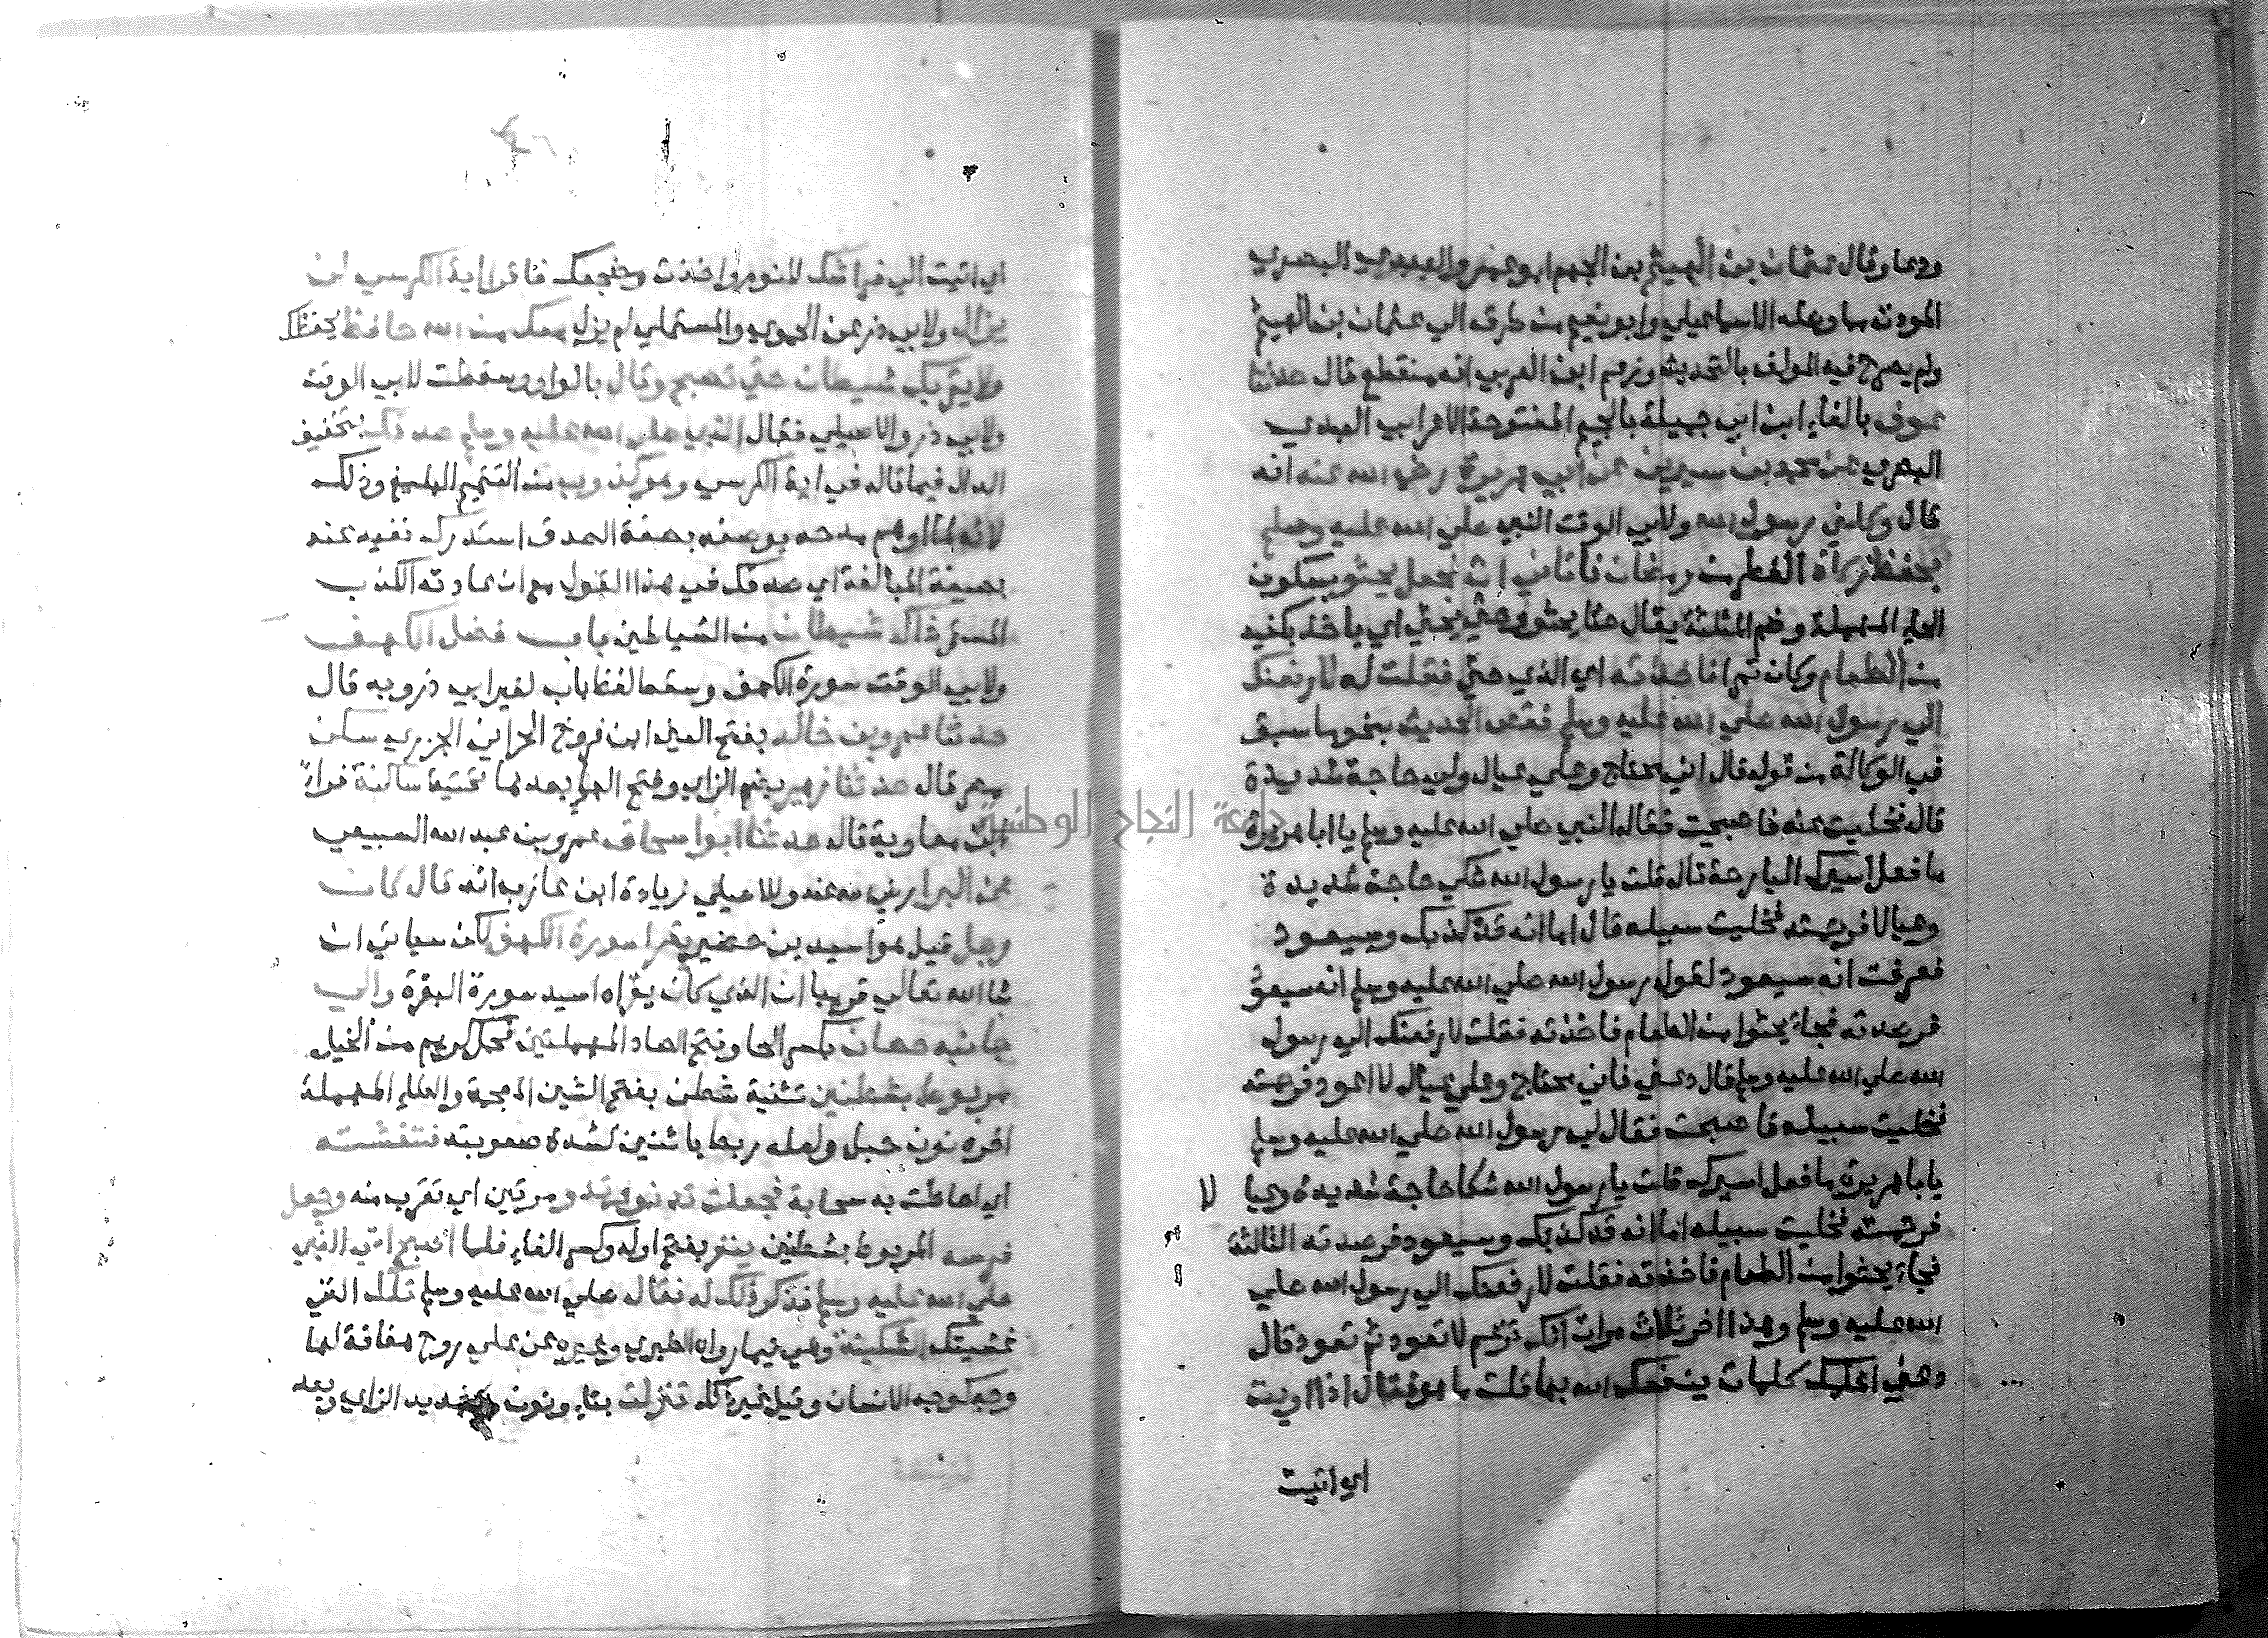 ودعا وقال عثمان بن الهيثم بن الجهم ابو عمرو العبدي البصري
الموذن مما وصله الاسماعيلي وابو نعيم من طرق الي عثمان بن الهيثم
ولم يصرح فيه المولف بالتحديث وزعم ابن العربي انه منقطع قال حدثنا
عوف بالفاء ابن ابي جميلة بالجيم المفتوحة الاعرابي العبدي
البصري عن محمد بن سيرين عن ابي هريرة رضي الله عنه انه
قال وكلني رسول الله ولابي الوقت النبي صلي الله عليه وسلم
بحفظ زكاة الفطر من رمضان فاتاني ات فجعل يحثو بسكون
الحاء المهملة وضم المثلثة يقال حثا يحثو وحثي يحثي اي ياخذ بكفيه
من الطعام وكان تم افاخذته اي الذي حثي فقلت له لارفعنك
الي رسول الله صلي الله عليه وسلم فقص الحديث بنحو ما سبق
في الوكالة من قوله قال اني محتاج وعلي عيال ولي حاجة شديدة
قال فخليت عنه فاصبحت فقال النبي صلي الله عليه وسلم يا ابا هريرة
ما فعل اسيرك البارحة قال قلت يا رسول الله شكي حاجة شديدة
وعيالا فرحمته فخليت سبيله قال اما انه قد كذبك وسيعود
فعرفت انه سيعود لقول رسول الله صلي الله عليه وسلم انه سيعود
فرصدته فجاء يحثوا من الطعام فاخذته فقلت لارفعنك الي رسول
الله صلي الله عليه وسلم قال دعني فاني محتاج وعلي عيال لا اعود فرحمته
فخليت سبيله فاصبحت فقال لي رسول الله صلي الله عليه وسلم
يابا هريرة ما فعل اسيرك قلت يا رسول الله شكا حاجة شديدة وعيا لا
فرحمته فخليت سبيله اما انه قد كذبك وسيعود فرصدته الثالثة
فجاء يحثوا من الطعام فاخذته فقلت لارفعنك الي رسول الله صلي
الله عليه وسلم وهذا اخر ثلاث مرات انك تزعم لا تعود ثم تعود قال
دعني اعلمك كلمات ينفعك الله بها قلت ما هو فقال اذا اويت
اي اتيت
اي اتيت الي فراشك للنوم واخذت مضجعك فاقرا اية الكرسي لن
يزال ولابي ذر عن الحموي والمستملي لم يزل معك من الله حافظ يحفظك
ولا يقربك شيطان حتي تصبح وقال بالواو وسقطت لابي الوقت
ولابي ذر والاصيلي فقال النبي صلي الله عليه وسلم صدقك بتخفيف
الدال فيما قاله في اية الكرسي وهو كذوب من التتميم البليغ وذلك
لانه لما اوهم مدحه بوصفه بصفة الصدق استدرك نفيه عنه
بصيغة المبالغة اي صدقك في هذا القول مع ان عادته الكذب
المستمر ذاك شيطان من الشياطين باب فضل الكهف
ولابي الوقت سورة الكهف وسقط لفظ باب لغير ابي ذر وبه قال
حدثنا عمرو بن خالد بفتح العين ابن فروخ الحراني الجزري سكن
مصر قال حدثنا زهير بضم الزاي وفتح الهاء بعدها تحتية ساكنة فراء
ابن معاوية قال حدثنا ابو اسحاق عمرو بن عبد الله السبيعي
عن البرا رضي الله عنه وللاصيلي زيادة ابن عازب انه قال كان
رجل قيل هو اسيد بن حضير يقرا سورة الكهف لكن سياتي ان
شا الله تعالي قريبا ان الذي كان يقراه اسيد سورة البقرة والي
جانبه حصان بكسر الحا وفتح الصاد المهملتين فحل كريم من الخيل
مربوط بشطنين تثنية شطن بفتح الشين المعجمة والطاء المهملة
اخره نون حبل ولعله ربط باثنين لشدة صعوبته فتغشته
اي احاطت به سحابة فجعلت تدنو وتدنو مرتين اي تقرب منه وجعل
فرسه المربوط بشطنين ينفر بفتح اوله وكسر الفاء فلما اصبح اتي النبي
صلي الله عليه وسلم فذكر ذلك له فقال صلي الله عليه وسلم تلك التي
غشيتك السكينة وهي فيما رواه الطبري وغيره عن علي روح هفافة لها
وجه كوجه الانسان وقيل غير ذلك تنزلت بتاء ونون وتشديد الزاي وبعد
جامعة النجاح الوطنية